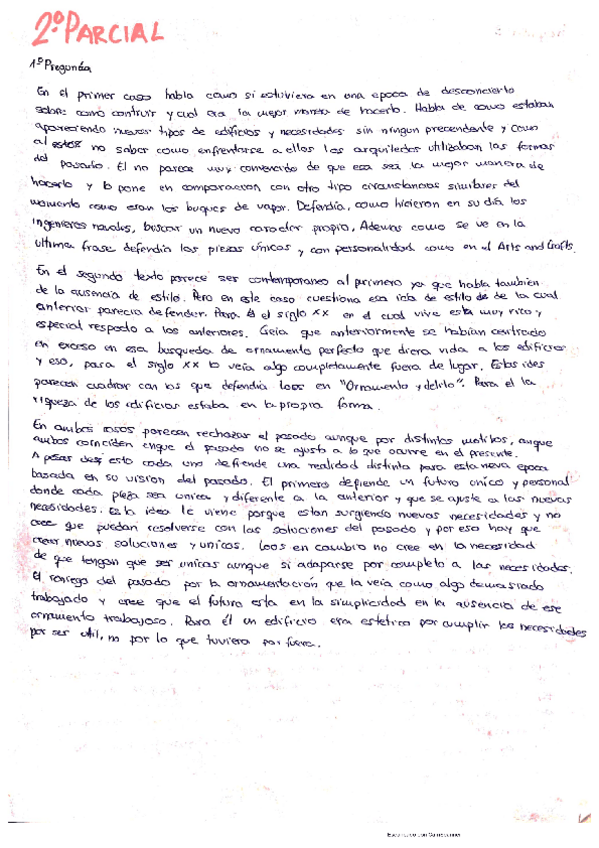 2º PARCIAL
1º Pregunta
En el primer caso habla como si estuviera en una epoca de desconcierto
sobre como contruir y cual era la mejor manera de hacerlo. Habla de como estaban
apareciendo nuevos tipos de edificios y necesidades sin ningun precendente y como
al estos no saber como enfrentarse a ellos los arquitectos utilizaban las formas
del pasado. El no parece muy convencido de que esa sea la mejor manera de
hacerlo y lo pone en comparacion con otro tipo circunstancias similares del
momento como eran los buques de vapor. Defendía, como hicieron en su día los
ingenieros navales, buscar un nuevo caracter propio, Ademas como se ve en la
ultima frase defendia las piezas únicas y con personalidad como en el Arts and Crafts.
En el segundo texto parece ser contemporaneo al primero ya que habla tambien
de la ausencia de estilo. Pero en este caso cuestiona esa ida de estilo de de la cual
anterior parecia defender. Para él el siglo XX en el cual vive esta muy rico y
especial respecto a los anteriores. Creia que anteriormente se habian centrado
en exceso en esa busqueda de ornamento perfecto que diera vida a los edificios
y eso, para el siglo XX lo veía algo completamente fuera de lugar. Estas ides
parecen cuadrar con las que defendia Loos en "Ornamento y delito". Para el la
riqueza de los edificios estaba en la propia forma.
En ambos casos parecen rechazar el pasado aunque por distintos motivos, auque
ambos coinciden en que el pasado no se ajusta a lo que ocurre en el presente.
A pesar de esto cada uno defiende una realidad distinta para esta neva epoca
basada en su vision del pasado. El primero defiende un futuro unico y personal
donde cada pieza sea unica y diferente a la anterior y que se ajuste a las nuevas
necesidades. Esta idea le viene porque estan surgiendo nuevas necesidades y no
cree que puedan resolverse con las soluciones del pasado y por eso hay que
crear nuevos soluciones y unicos. Loos en cambio no cree en la necesidad
de que tengan que ser unicas aunque si adaparse por completo a las necesidades.
El reniega del pasado por la ornamentación que la veía como algo demasiado
trabajado y cree que el futuro esta en la simplicidad en la ausencia de ese
ornamento trabajoso. Para él un edificio era estetico por cumplir las necesidades
por ser util, no por lo que tuviera por fuera.
Escaneado con CamScanner